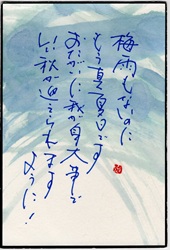 梅雨もないのに
もう真夏日です
おたがいに我が身大事で
いい秋が迎えられます
ように!